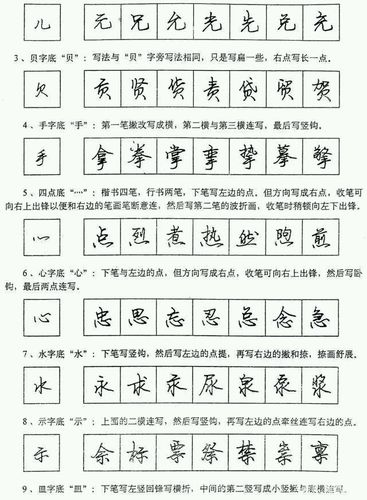 儿 元 兄 允 光 先 兑 充
3、贝字底“贝”：写法与“贝”字旁写法相同，只是写扁一些，右点写长一点。
贡 贤 货 责 贷 贸 贺
4、手字底“手”：第一笔撇改写成横，第二横与第三横连写，最后写竖钩。
手 拿 拳 掌 挛 挚 摹 擎
5、四点底“灬”：楷书四笔，行书两笔，下笔写左边的点，但方向写成右点，收笔可
向右上出锋以便和右边的笔画笔断意连，然后写第二笔的波折画，收笔时稍顿向左下出锋。
点 烈 煮 热 然 煦 煎
6、心字底“心”：下笔与左边的点，但方向写成右点，收笔可向右上出锋，然后写卧
钩，最后两点连写。
心 忠 思 忘 忍 总 念 急
7、水字底“水”：下笔写竖钩，然后写左边的点提，再写右边的撇和捺，捺画舒展。
水 永 求 汞 尿 泉 泵 浆
8、示字底“示”：上面的二横连写，然后写竖钩，再写左边的点牵丝连写右边的点。
示 余 标 票 祭 禁 崇 禀
9、皿字底“皿”：下笔写左竖回锋写横折，中间的第二竖写成小竖